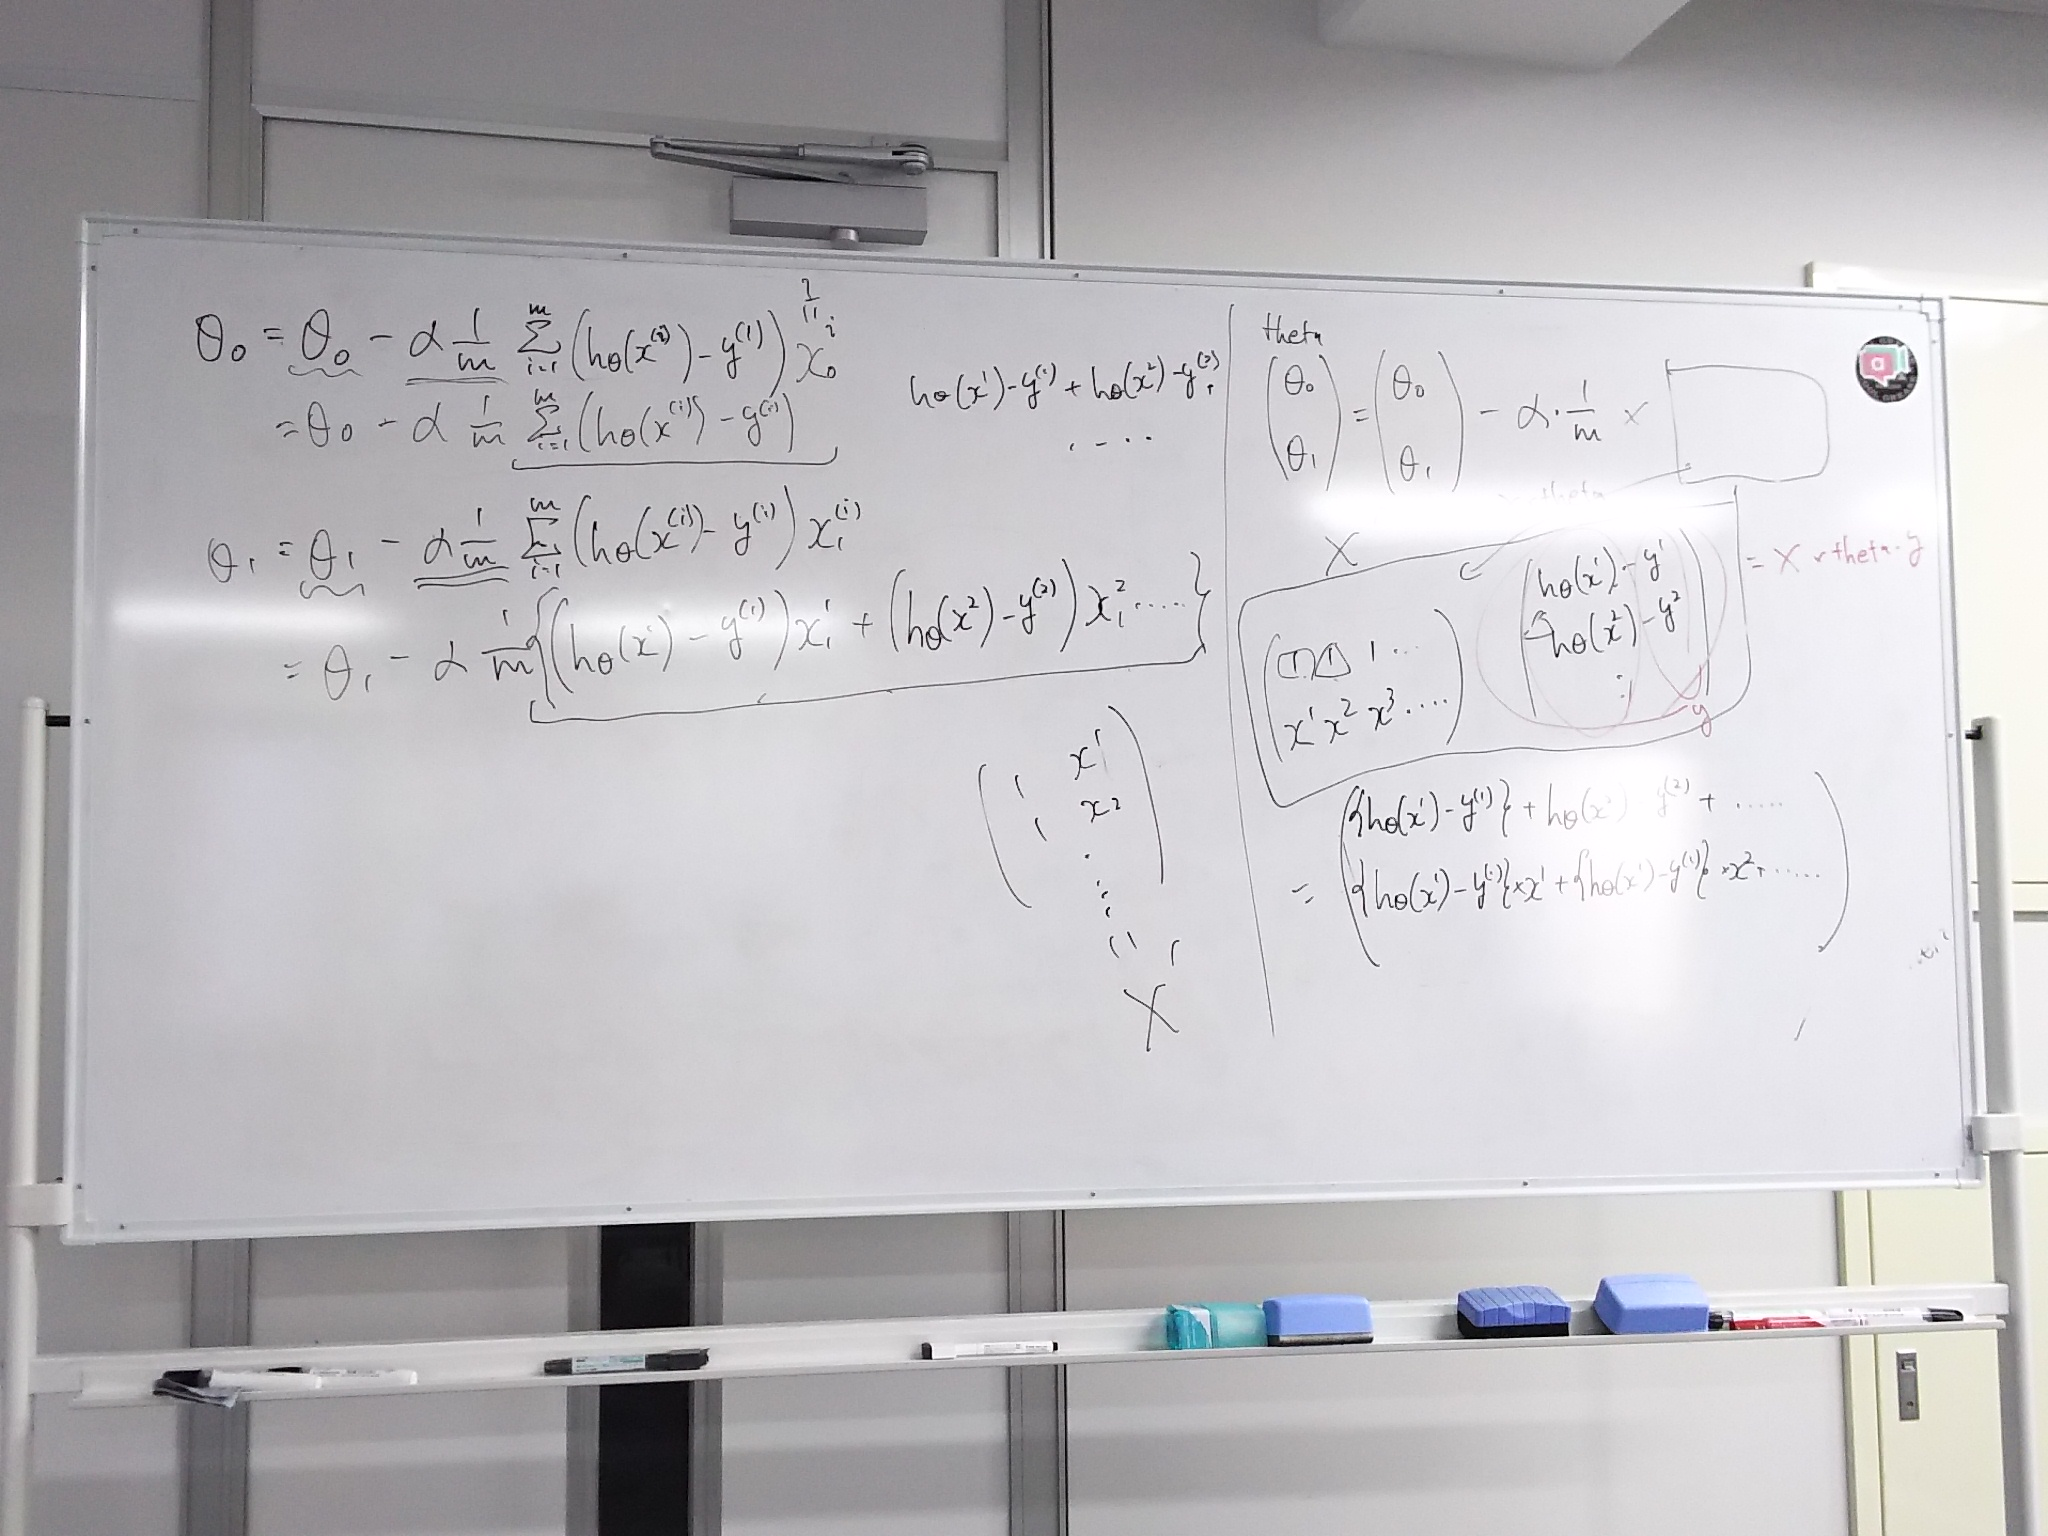 1
॥
θ₀ = θ₀ - α 1/m Σ_{i=1}^{m} (hθ(x^{(i)}) - y^{(1)}) x₀^{i}
= θ₀ - α 1/m Σ_{i=1}^{m} (hθ(x^{(i)}) - y^{(i)})
hθ(x¹) - y^{(1)} + hθ(x²) - y^{(2)},
. - . .
θ₁ = θ₁ - α 1/m Σ_{i=1}^{m} (hθ(x^{(i)}) - y^{(i)}) x₁^{(i)}
= θ₁ - α 1/m {(hθ(x¹) - y^{(1)}) x₁¹ + (hθ(x²) - y^{(2)}) x₁² ..... }
( 1 x¹
1 x²
.
: )
X
theta
(θ₀ θ₁) = (θ₀ θ₁) - α · 1/m ×
theta
X
(1 1 1 ...
x¹ x² x³ ....)
(hθ(x¹) - y¹
hθ(x²) - y²
:)
= X * theta - y
y
= ({hθ(x¹) - y^{(1)}} + hθ(x²) y^{(2)} + .....
{hθ(x¹) - y^{(1)}} * x¹ + {hθ(x¹) - y^{(1)}} * x² + .....)